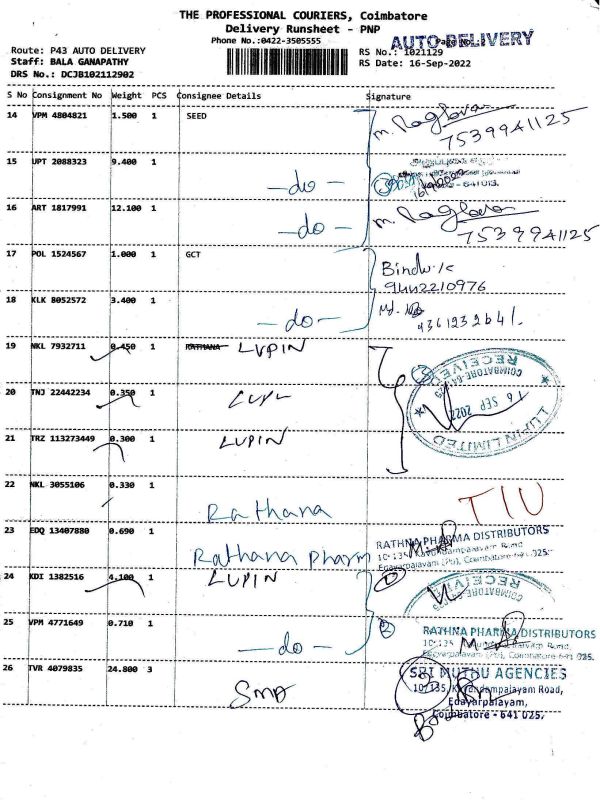 THE PROFESSIONAL COURIERS, Coimbatore
Delivery Runsheet - PNP
Phone No.:0422-3505555
AUTO DELIVERY
Route: P43 AUTO DELIVERY
Staff: BALA GANAPATHY
DRS No.: DCJB102112902
RS No.: 1021129
RS Date: 16-Sep-2022
S No Consignment No Weight PCS Consignee Details Signature
14 VPM 4804821 1.500 1 SEED m. Raghavan
7539941125
15 UPT 2088323 9.400 1 -do-
16 ART 1817991 12.100 1 -do- m. Raghavan
7539941125
17 POL 1524567 1.000 1 GCT Bindu.k
9442210976
18 KLK 8052572 3.400 1 -do-
19 NKL 7932711 0.450 1 RATHANA LUPIN
20 TNJ 22442234 0.350 1
COIMBATORE
RECEIVED
16 SEP 2022
LUPIN LIMITED
21 TRZ 113273449 0.300 1 LUPIN
22 NKL 3055106 0.330 1 Rathana
23 EDQ 13407880 0.690 1 Rathana pharm
RATHNA PHARMA DISTRIBUTORS
24 KDI 1382516 4.100 1 LUPIN
RECEIVED
COIMBATORE
25 VPM 4771649 0.710 1 -do-
RATHNA PHARMA DISTRIBUTORS
26 TVR 4079835 24.800 3
SRI MUTHU AGENCIES
10/135, Kavundampalayam Road,
Edayarpalayam,
Coimbatore - 641 025.